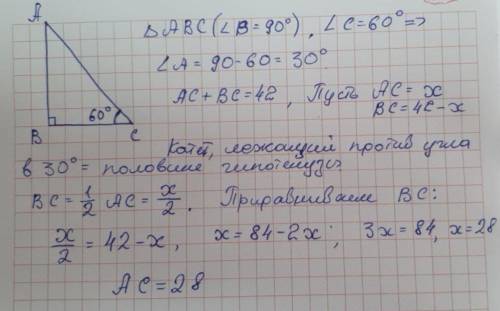 A
B
C
60°
△ABC (∠B = 90°), ∠C = 60° =>
∠A = 90 - 60 = 30°
AC + BC = 42, Пусть AC = x
BC = 42 - x
Катет, лежащий против угла
в 30° = половине гипотенузы
BC = 1/2 AC = x/2. Приравниваем BC:
x/2 = 42 - x, x = 84 - 2x; 3x = 84, x = 28
AC = 28